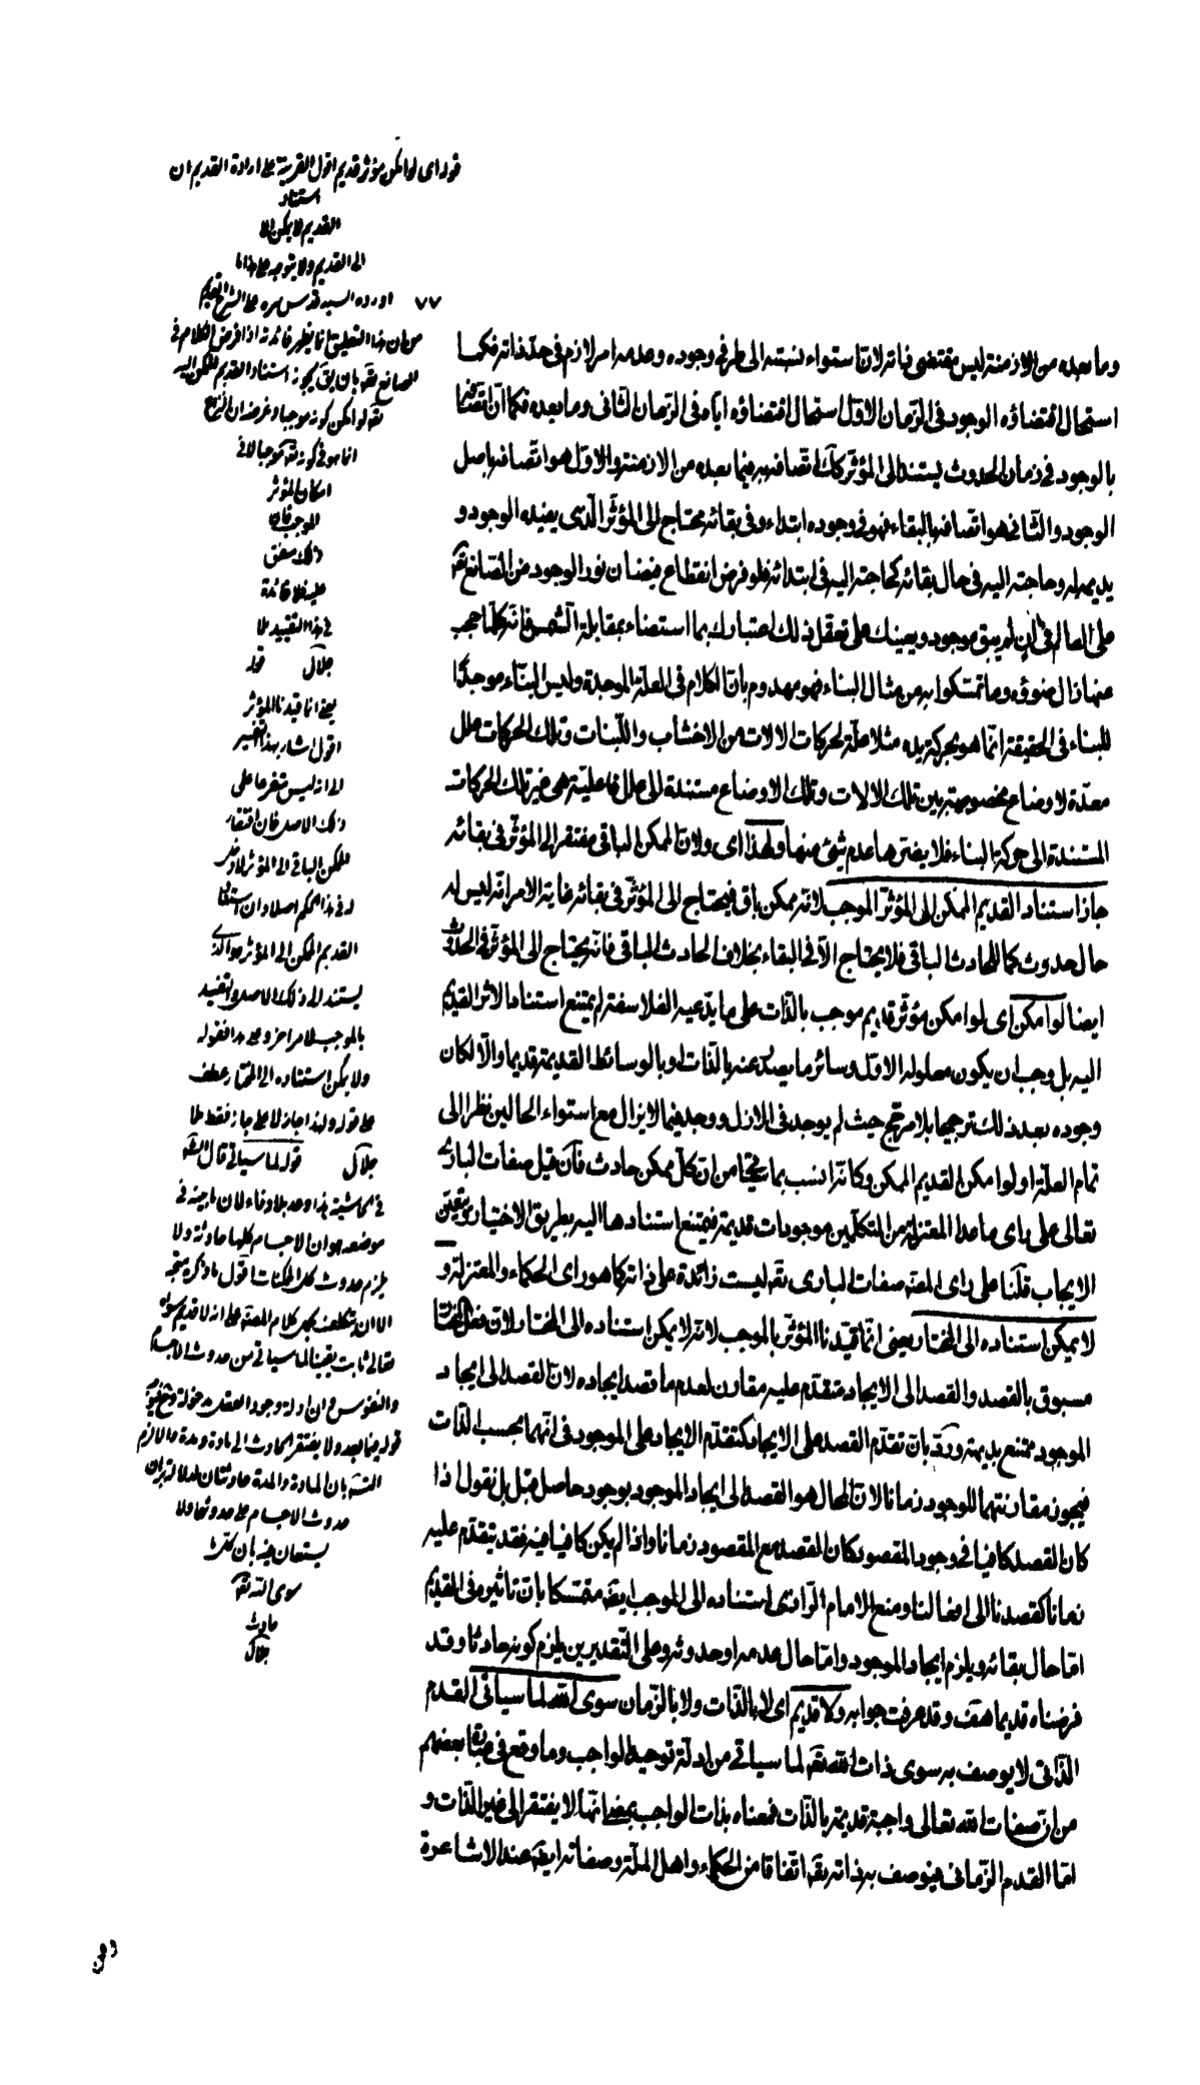 وما بعده من الازمنة ليس مقتضى ذاته لان استواء نسبته الى طرفى وجوده وعدمه امر لازم فى حد ذاته فكما
استحال اقتضاؤه الوجود فى الزمان الاول استحال اقتضاؤه اياه فى الزمان الثانى وما بعده فكما ان اتصافه
بالوجود فى زمان الحدوث يستند الى المؤثر كذلك اتصافه به فيما بعده من الازمنة والاول هو اتصافه باصل
الوجود والثانى هو اتصافه بالبقاء فهو فى وجوده ابتداء وفى بقائه محتاج الى المؤثر الذى يفيده الوجود و
يديمه له وحاجته اليه فى حال بقائه كحاجته اليه فى ابتدائه فلو فرض انقطاع فيضان نور الوجود من الصانع تعه
على العالم فى آن لم يبق موجود ويعينك على تعقل ذلك اعتبارك بما استضاء بمقابلة الشمس فانه كلما حجب
عنها زال ضوئه وما تمسكوا به من مثال البناء فهو مهدوم بان الكلام فى العلة الموجدة وليس البناء موجدا
للبناء فى الحقيقة انما هو بحركة يده مثلا علة لحركات الالات من الاخشاب واللبنات وتلك الحركات علل
معدة لاوضاع مخصوصة بين تلك الالات وتلك الاوضاع مستندة الى علل فاعلية هى غير تلك الحركات
المستندة الى حركة البناء فلا يضرها عدم شئ منها ولهذا اى ولان الممكن الباقى مفتقر الى المؤثر فى بقائه
جاز استناد القديم الممكن الى المؤثر الموجب لانه ممكن باق فيحتاج الى المؤثر فى بقائه غاية الامر انه ليس له
حال حدوث كما للحادث الباقى فلا يحتاج الا فى البقاء بخلاف الحادث الباقى فانه يحتاج الى المؤثر فى الحدوث
ايضا لو امكن اى لو امكن مؤثر قديم موجب بالذات على ما يدعيه الفلاسفة لم يمتنع استناد الاثر القديم
اليه بل وجب ان يكون معلوله الاول وسائر ما يصدر عنه بالذات او بالوسائط القديمة قديما والا لكان
وجوده بعد ذلك ترجيحا بلا مرجح حيث لم يوجد فى الازل ووجد فيما لا يزال مع استواء الحالين نظرا الى
تمام العلة او لو امكن القديم الممكن وكانه انسب بما يجئ من ان كل ممكن حادث فان قيل صفات البارى
تعالى على راى ما عدا المعتزلة من المتكلمين موجودات قديمة فيمتنع استنادها اليه بطريق الاختيار ويتعين
الايجاب قلنا على راى المصه صفات البارى تعه ليست زائدة على ذاته كما هو راى الحكماء والمعتزلة و
لا يمكن استناده الى المختار يعنى انما قيدنا المؤثر بالموجب لانه لا يمكن استناده الى المختار لان فعل المختار
مسبوق بالقصد والقصد الى الايجاد متقدم عليه مقارن لعدم ما قصد ايجاده لان القصد الى ايجاد
الموجود ممتنع بديهة ورد بان تقدم القصد على الايجاد كتقدم الايجاد على الموجود فى انهما بحسب الذات
فيجوز مقارنتهما للوجود زمانا لان المحال هو القصد الى ايجاد الموجود بوجود حاصل قبل بل نقول اذا
كان القصد كافيا فى وجود المقصود كان القصد مع المقصود زمانا واذا لم يكن كافيا فيه فقد يتقدم عليه
زمانا كقصدنا الى افعالنا ومنع الامام الرازى استناده الى الموجب ايضه متمسكا بان تاثيره فى القديم
اما حال بقائه ويلزم ايجاد الموجود واما حال عدمه او حدوثه وعلى التقديرين يلزم كونه حادثا وقد
فرضناه قديما هف وقد عرفت جوابه ولا قديم اى لا بالذات ولا بالزمان سوى الله لما سياتى القدم
الذاتى لا يوصف به سوى ذات الله تعه لما سياتى من ادلة توحيد الواجب وما وقع فى عبارة بعضهم
من ان صفات الله تعالى واجبة قديمة بالذات فمعناه بذات الواجب بمعنى انها لا يفتقر الى غير الذات و
اما القدم الزمانى فيوصف به ذاته تعه اتفاقا من الحكماء واهل الملة وصفاته ايضه عند الاشاعرة
قوله اى لو امكن مؤثر قديم اقول القرينة على ارادة القديم ان
استناد
القديم لا يمكن الا
الى القديم ولا يتوجه على هذا ما
اورده السيد قدس سره على الشرح القديم
٧٧
من ان هذا التعليق انما يظهر فائدته اذا فرض الكلام فى
الصانع تعه بان يق يجوز استناد القديم الممكن اليه
تعه لو امكن كونه موجبا وغرضه ان النزاع
انما هو فى كونه تعه موجبا لا فى
امكان المؤثر
الموجب فان
ذلك متفق
عليه فلا فائدة
فى هذا التقييد
جلال قوله
يعنى انما قيدنا المؤثر
اقول اشار بهذا التفسير
الى انه ليس متفرعا على
ذلك الاصل فان افتقار
الممكن الباقى الى المؤثر لا دخل
له فى هذا الحكم اصلا وان استناد
القديم الممكن الى المؤثر هو الذى
يستند الى ذلك الاصل والتقييد
بالموجب لامر اخر وعلى هذا فقوله
ولا يمكن استناده الى المختار عطف
على قوله ولهذا جاز لا على جاز فقط
جلال قوله لما سياتى قال
فى الحاشية هذا وعد بلا وفاء لان ما يجئ فى
موضعه هو ان الاجسام كلها حادثة ولا
يلزم حدوث كل الممكنات اقول ما ذكره متجه
الا ان يتكلف بحمل كلام المصه على انه لا قديم سواه
تعالى ثابت يقينا لما سياتى من حدوث الاجسام
والنفوس وان ادلة وجود العقل مدخولة
قوله فيما بعد ولا يفتقر الحادث الى مادة ومدة والا لزم
التسه بان المادة والمدة حادثتان لدلالة برهان
حدوث الاجسام على حدوثها ولا
يستعان فيه بان كل ما
سوى الله تعه
حادث
جلال